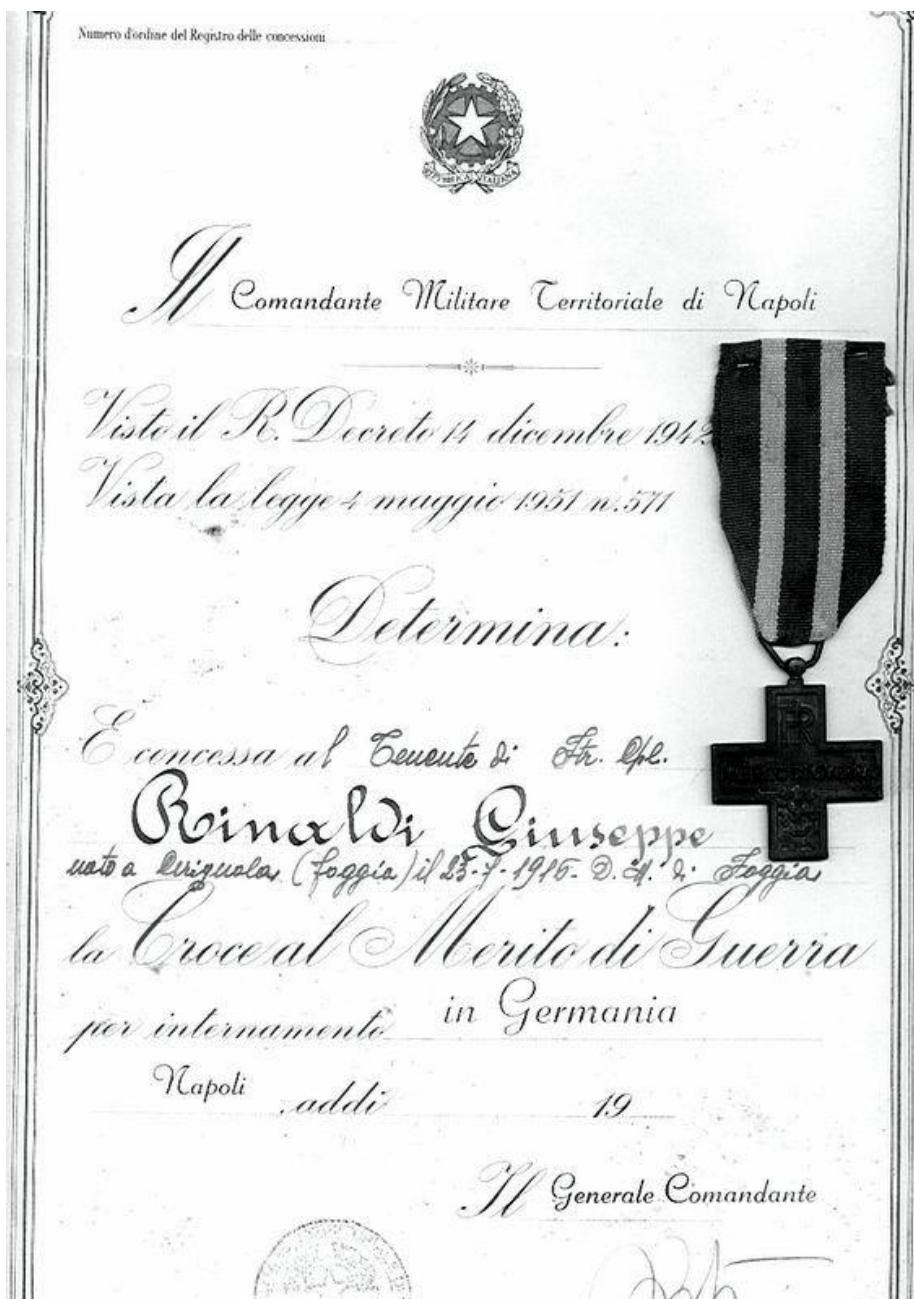 Numero d'ordine del Registro delle concessioni
REPVBBLICA ITALIANA
Il Comandante Militare Territoriale di Napoli
Visto il R. Decreto 14 dicembre 1942
Vista la legge 4 maggio 1951 n. 571
Determina:
È concessa al Tenente di Ftr. Cpl.
Rinaldi Giuseppe
nato a Cerignola (Foggia) il 25-7-1916- D. M. di Foggia
la Croce al Merito di Guerra
per internamento in Germania
Napoli addì 19
Il Generale Comandante